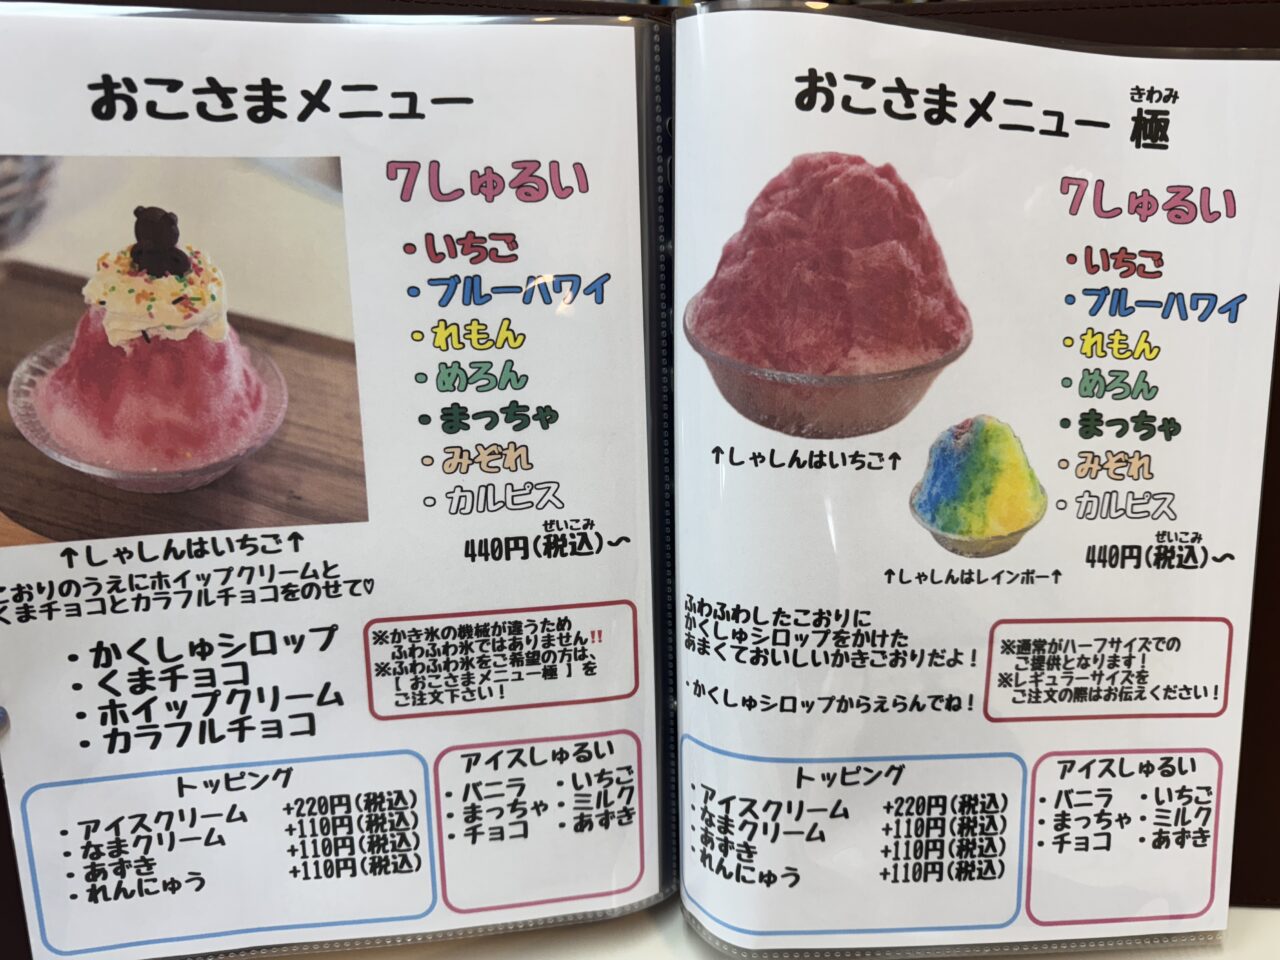 おこさまメニュー
7しゅるい
・いちご
・ブルーハワイ
・れもん
・めろん
・まっちゃ
・みぞれ
・カルピス
ぜいこみ
440円(税込)~
↑しゃしんはいちご↑
こおりのうえにホイップクリームと
くまチョコとカラフルチョコをのせて♡
・かくしゅシロップ
・くまチョコ
・ホイップクリーム
・カラフルチョコ
※かき氷の機械が違うため
ふわふわ氷ではありません!!
※ふわふわ氷をご希望の方は、
[ おこさまメニュー極 ] を
ご注文下さい!
トッピング
・アイスクリーム +220円(税込)
・なまクリーム +110円(税込)
・あずき +110円(税込)
・れんにゅう +110円(税込)
アイスしゅるい
・バニラ ・いちご
・まっちゃ ・ミルク
・チョコ ・あずき
きわみ
おこさまメニュー 極
7しゅるい
・いちご
・ブルーハワイ
・れもん
・めろん
・まっちゃ
・みぞれ
・カルピス
ぜいこみ
440円(税込)~
↑しゃしんはいちご↑
↑しゃしんはレインボー↑
ふわふわしたこおりに
かくしゅシロップをかけた
あまくておいしいかきごおりだよ!
・かくしゅシロップからえらんでね!
※通常がハーフサイズでの
ご提供となります!
※レギュラーサイズを
ご注文の際はお伝えください!
トッピング
・アイスクリーム +220円(税込)
・なまクリーム +110円(税込)
・あずき +110円(税込)
・れんにゅう +110円(税込)
アイスしゅるい
・バニラ ・いちご
・まっちゃ ・ミルク
・チョコ ・あずき